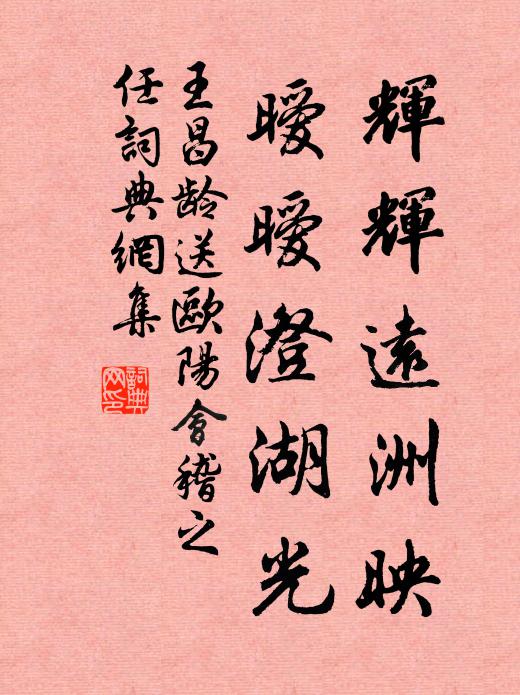 輝輝遠洲映
曖曖澄湖光
王昌龄送歐陽會稽之
任詞典網集
詞典
网印